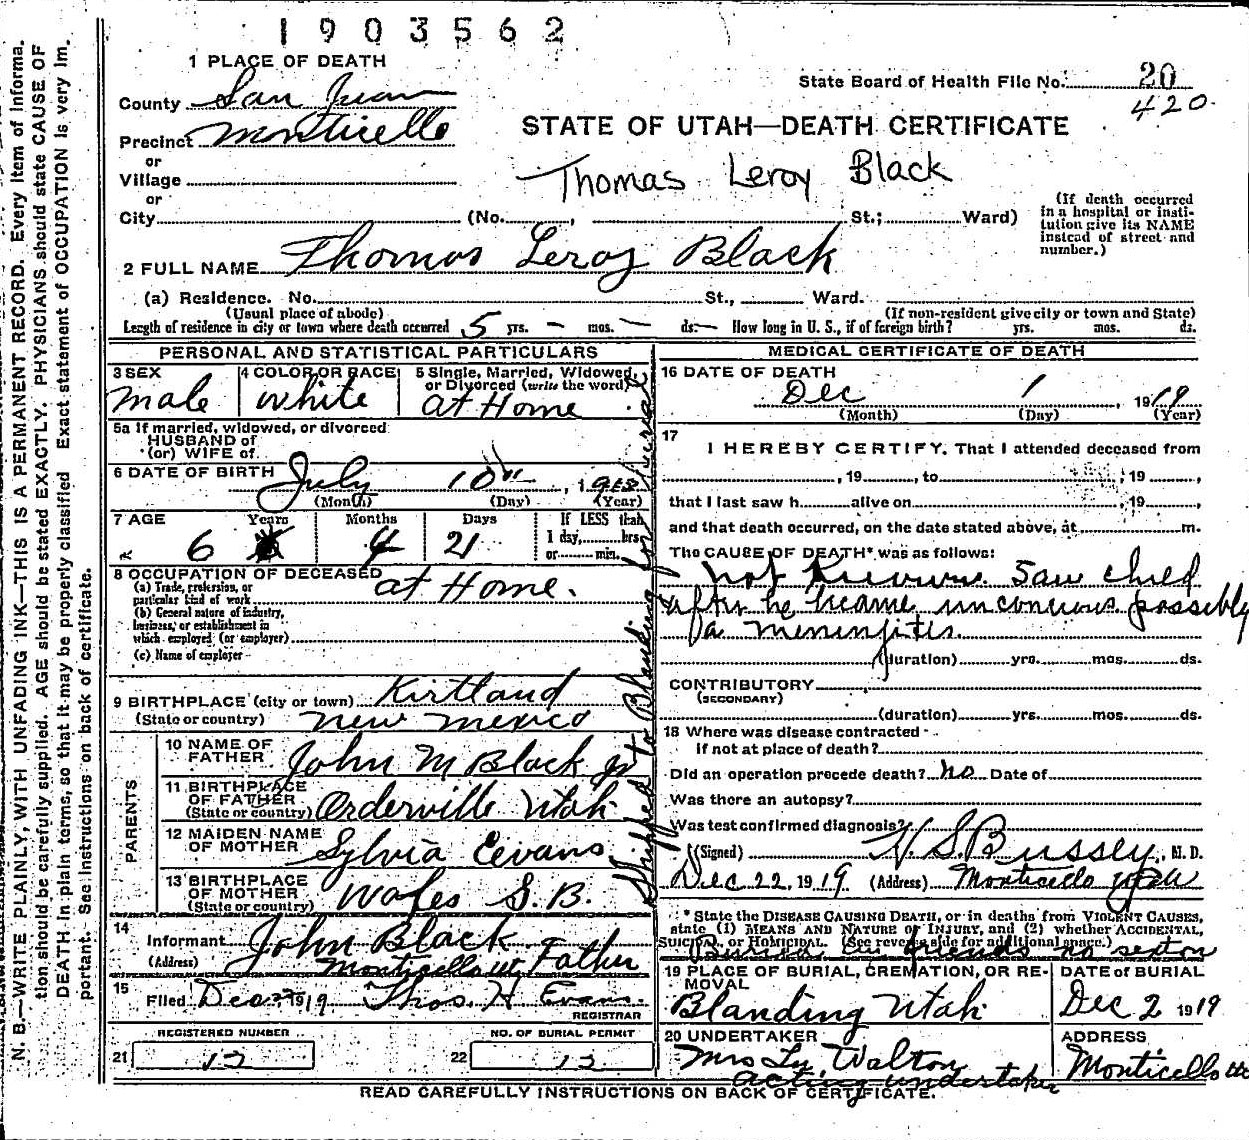 1903562
1 PLACE OF DEATH
State Board of Health File No. 20
420
County San Juan
Precinct Monticello
STATE OF UTAH—DEATH CERTIFICATE
or
Village
Thomas Leroy Black
or
City (No. , St.; Ward)
(If death occurred in a hospital or insti-
tution give its NAME instead of street and number.)
2 FULL NAME Thomas Leroy Black
(a) Residence. No. St., Ward.
(Usual place of abode) (If non-resident give city or town and State)
Length of residence in city or town where death occurred 5 yrs. — mos. — ds. — How long in U. S., if of foreign birth? yrs. mos. ds.
PERSONAL AND STATISTICAL PARTICULARS
3 SEX
male
4 COLOR OR RACE
white
5 Single, Married, Widowed, or Divorced (write the word)
at Home
5a If married, widowed, or divorced
HUSBAND of
(or) WIFE of
6 DATE OF BIRTH July 10
(Month) (Day) (Year)
7 AGE Years Months Days If LESS than
6 4 21 1 day, hrs.
or min.
8 OCCUPATION OF DECEASED at Home.
(a) Trade, profession, or
particular kind of work
(b) General nature of industry,
business, or establishment in
which employed (or employer)
(c) Name of employer
9 BIRTHPLACE (city or town) Kirtland
(State or country) New Mexico
PARENTS
10 NAME OF FATHER John M Black Jr
11 BIRTHPLACE OF FATHER (State or country) Orderville Utah
12 MAIDEN NAME OF MOTHER Sylvia Eevans
13 BIRTHPLACE OF MOTHER (State or country) Wales S. B.
14 Informant John Black Father
(Address) Monticello ut
15 Filed Dec 1919 Thos. H. Evans.
REGISTRAR
REGISTERED NUMBER NO. OF BURIAL PERMIT
21 12 22 12
Shipped to Blanding for burial
MEDICAL CERTIFICATE OF DEATH
16 DATE OF DEATH
Dec 1, 1919
(Month) (Day) (Year)
17 I HEREBY CERTIFY, That I attended deceased from
, 19 , to , 19 ,
that I last saw h alive on , 19 ,
and that death occurred, on the date stated above, at m.
The CAUSE OF DEATH* was as follows:
not Known. Saw child
after he became unconcious possibly
a meninjites.
(duration) yrs. mos. ds.
CONTRIBUTORY
(SECONDARY)
(duration) yrs. mos. ds.
18 Where was disease contracted
if not at place of death?
Did an operation precede death? no Date of
Was there an autopsy?
Was test confirmed diagnosis?
(Signed) W. S. Bussey, M. D.
Dec 22, 1919 (Address) Monticello Utah
* State the DISEASE CAUSING DEATH, or in deaths from VIOLENT CAUSES,
state (1) MEANS AND NATURE OF INJURY, and (2) whether ACCIDENTAL,
SUICIDAL, or HOMICIDAL. (See reverse side for additional space.)
Buried by friends no sexton
19 PLACE OF BURIAL, CREMATION, OR RE-
MOVAL
Blanding Utah
DATE of BURIAL
Dec 2 1919
20 UNDERTAKER
Mrs Walton
acting undertaker
ADDRESS
Monticello ut
READ CAREFULLY INSTRUCTIONS ON BACK OF CERTIFICATE.
N. B.—WRITE PLAINLY, WITH UNFADING INK—THIS IS A PERMANENT RECORD. Every item of informa-
tion should be carefully supplied. AGE should be stated EXACTLY. PHYSICIANS should state CAUSE OF
DEATH in plain terms, so that it may be properly classified Exact statement of OCCUPATION is very im-
portant. See instructions on back of certificate.